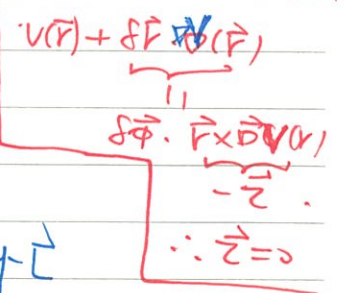 V(r⃗) + δr⃗ ∇V(r⃗)
||
δφ⃗ · r⃗×∇⃗V(r)
-τ⃗ .
∴ τ⃗ = 0